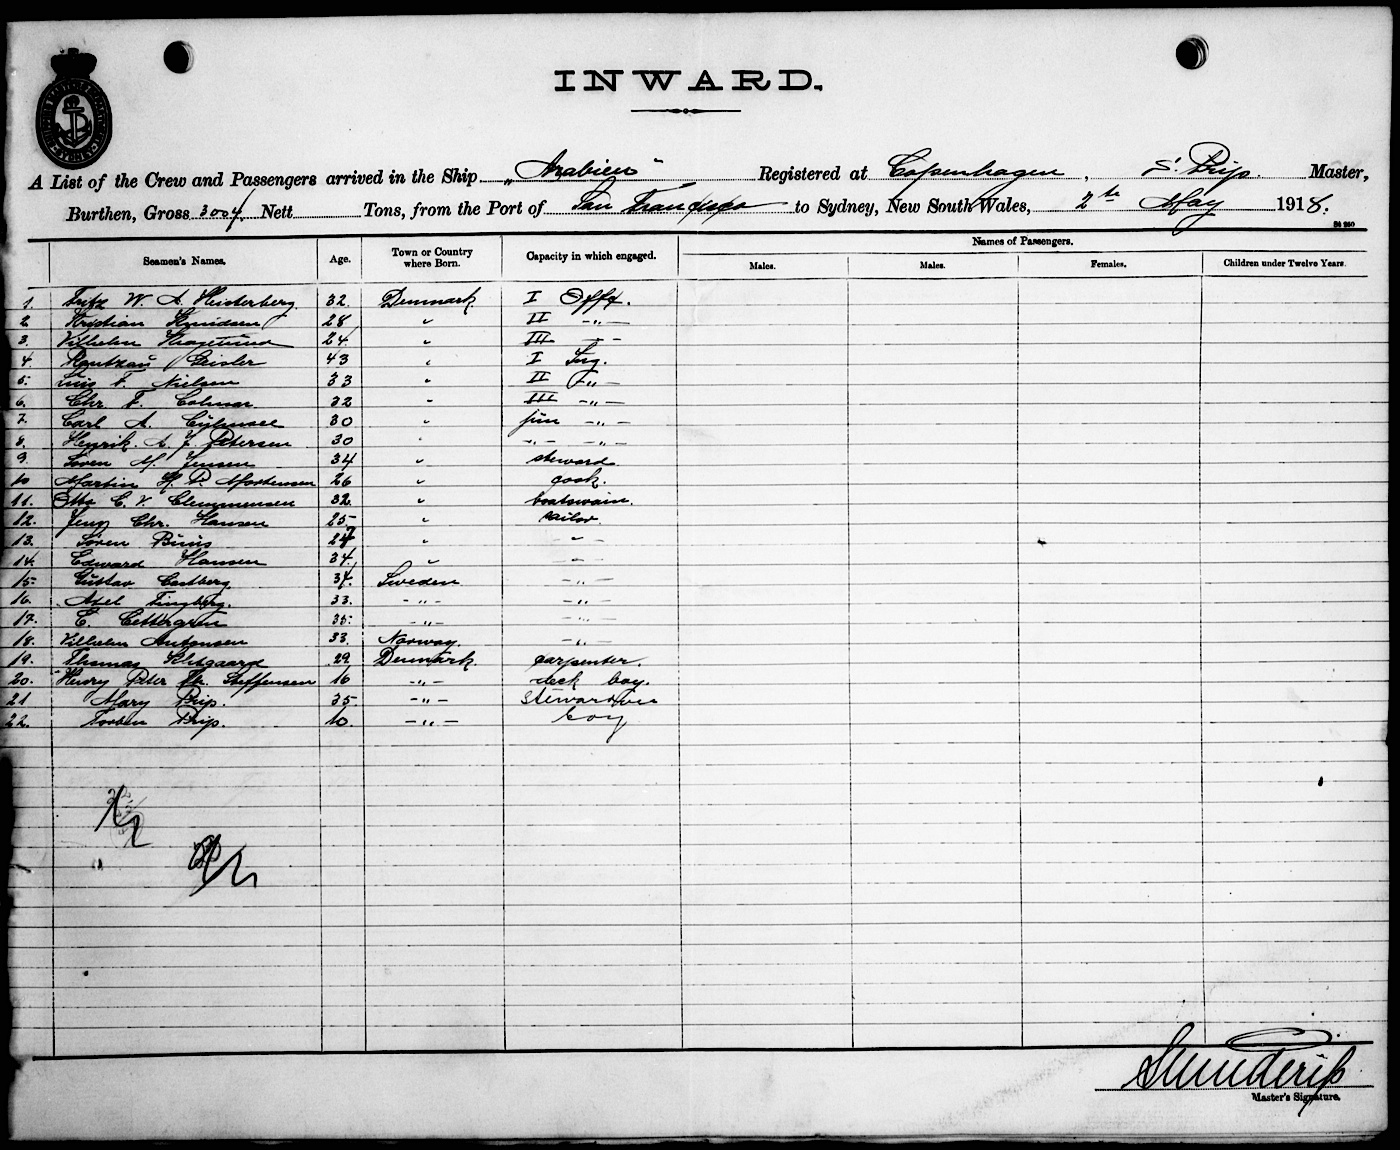 INWARD.
A List of the Crew and Passengers arrived in the Ship „Arabien" Registered at Copenhagen, S. Prip. Master,
Burthen, Gross 3004 Nett Tons, from the Port of San Francisco to Sydney, New South Wales, 2th May 1918.
Seamen's Names. Age. Town or Country where Born. Capacity in which engaged. Names of Passengers.
Males. Males. Females. Children under Twelve Years.
1. Fritz W. A. Heisterberg. 32. Denmark. I Offr.
2. Kristian Knudsen 28 " II —"—
3. Vilhelm 24 " III —"—
4. Rantzau Geisler 43 " I Ing.
5. F. Nielsen 33 " II —"—
6. Chr. F. Colmar 32 " III —"—
7. Carl A. 30 " jun —"—
8. Henrik. A. J. Petersen 30 " —"— —"—
9. Søren M. Jensen 34 " steward
10 Martin P. Mortensen 26 " cook.
11. Otto C. V. Clemmensen 32. " boatswain.
12. Jens Chr. Hansen 25 " sailor.
13. Søren Buus 27 " "
14. Edward Hansen 34. " —"—
15. Gustav Castberg 34. Sweden —"—
16. Axel Tingberg. 33. —"— —"—
17. E. Cettergren 35. —"— —"—
18. Vilhelm Antonsen 33. Norway. —"—
19. Thomas Klitgaard 29. Denmark. carpenter.
20. Henry Peter Steffensen 16 —"— deck boy.
21 Mary Prip. 35 —"— stewardess
22. Torben Prip. 10. —"— boy
Master's Signature.